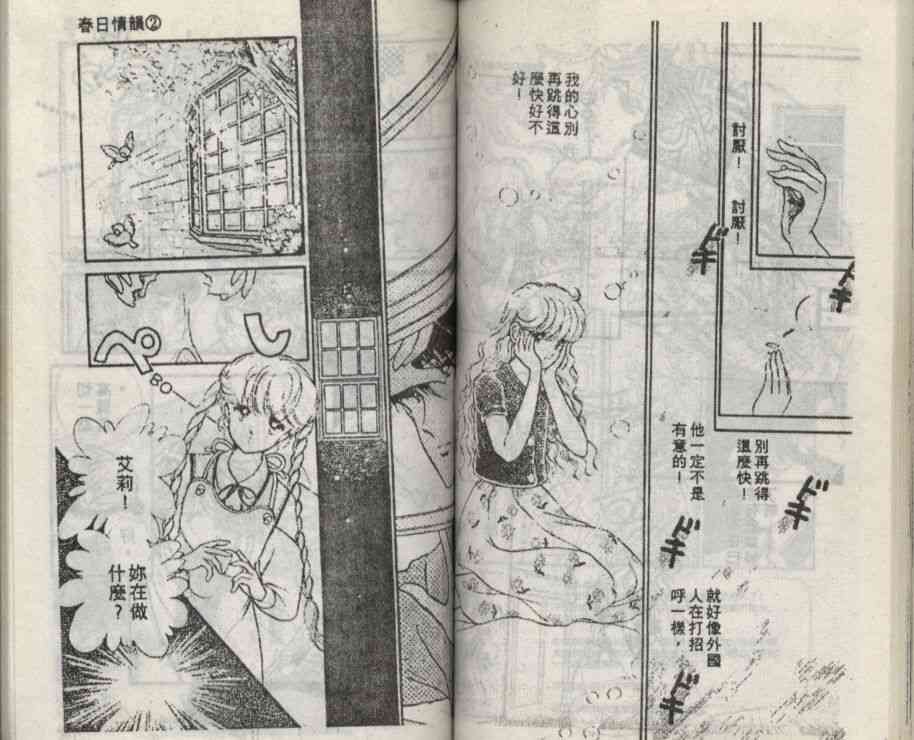 討厭！
討厭！
ドキ
ドキ
別再跳得
這麼快！
ドキ
他一定不是
有意的！
ドキ
就好像外國
人在打招
呼一樣，
ドキ
我的心別
再跳得這
麼快好不
好！
春日情韻②
し
ぺ
艾莉！
妳在做
什麼？